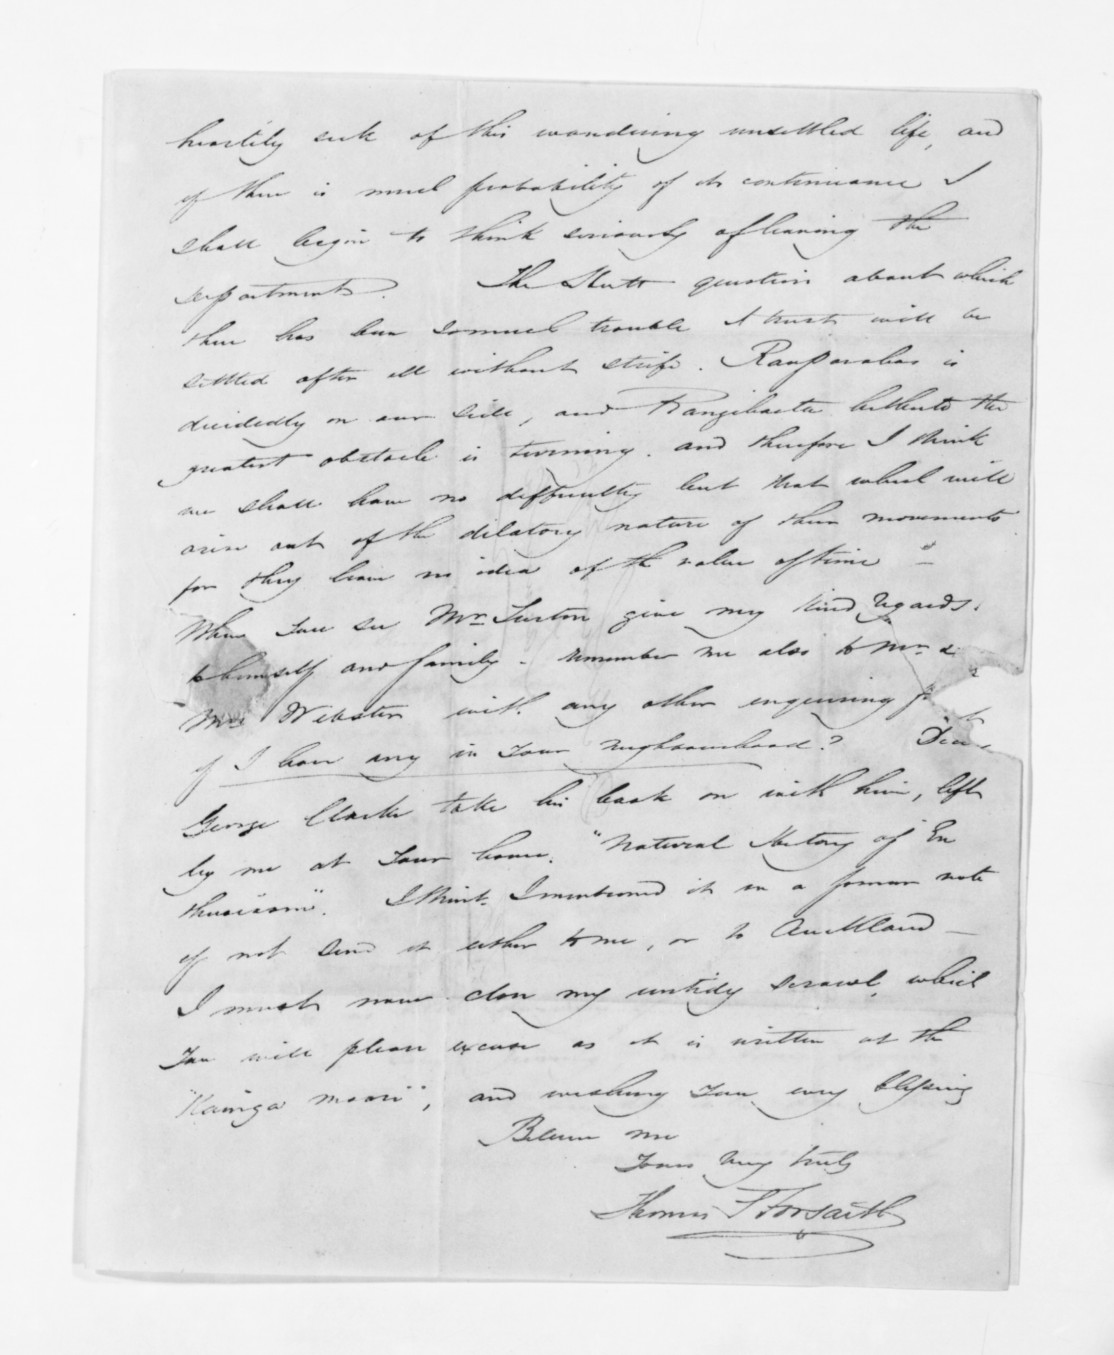 heartily sick of this wandering unsettled life, and
if there is much probability of its continuance I
shall begin to think seriously of leaving the
department. The Hutt question about which
there has been so much trouble I trust will be
settled after all without strife. Rauparahas is
decidedly on our side, and Rangihaeta hitherto the
greatest obstacle is turning. and therefore I think
we shall have no difficulty but that which will
arise out of the dilatory nature of their movements
for they have no idea of the value of time –
When you see Mr Turton give my kind regards.
to himself and family – remember me also to Mr &
Mrs Webster with any other enquiring
if I have any in your neighbourhood?
George Clarke take his book on with him, left
by me at your house. "Natural History of En
thusiasm". I think I mentioned it in a former note
if not send it either to me, or to Auckland –
I must now close my untidy scrawl, which
you will please excuse as it is written at the
"Kainga maori", and wishing you every blessing
Believe me
Yours very truly
Thomas S Forsaith